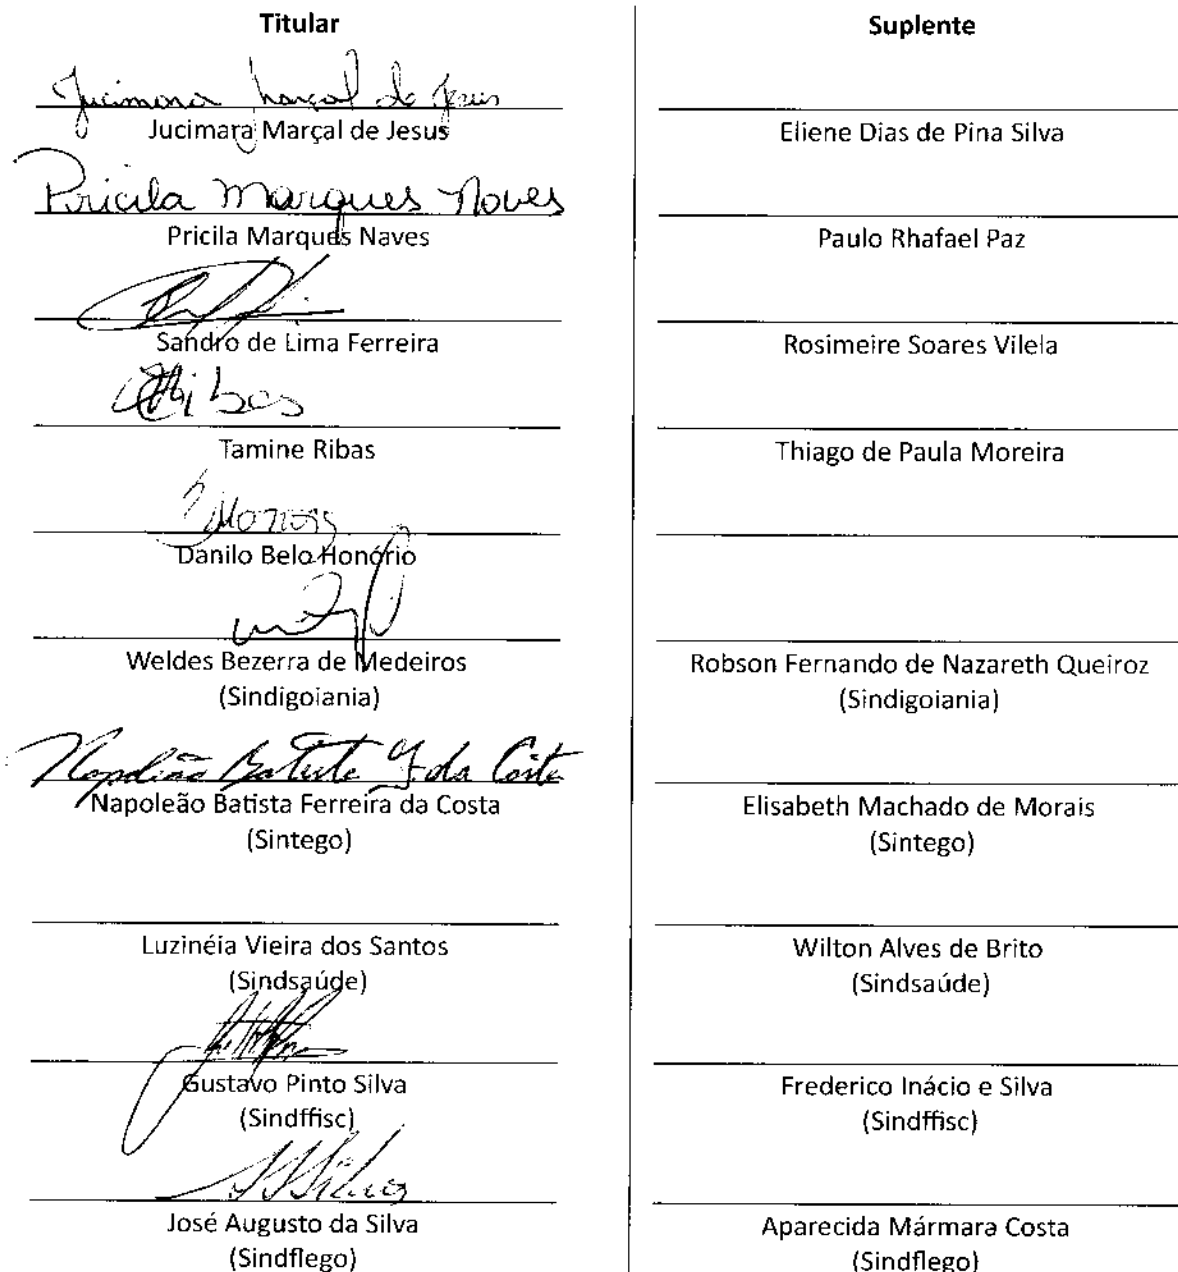 Titular
Jucimara Marçal de Jesus
Jucimara Marçal de Jesus
Pricila Marques Naves
Pricila Marques Naves
Sandro de Lima Ferreira
Ribas
Tamine Ribas
Danilo Belo Honório
Weldes Bezerra de Medeiros
(Sindigoiania)
Napoleão Batista F. da Costa
Napoleão Batista Ferreira da Costa
(Sintego)
Luzinéia Vieira dos Santos
(Sindsaúde)
Gustavo Pinto Silva
(Sindffisc)
José Augusto da Silva
(Sindflego)
Suplente
Eliene Dias de Pina Silva
Paulo Rhafael Paz
Rosimeire Soares Vilela
Thiago de Paula Moreira
Robson Fernando de Nazareth Queiroz
(Sindigoiania)
Elisabeth Machado de Morais
(Sintego)
Wilton Alves de Brito
(Sindsaúde)
Frederico Inácio e Silva
(Sindffisc)
Aparecida Mármara Costa
(Sindflego)